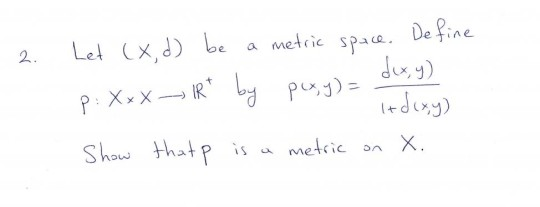 2. Let (X,d) be a metric space. Define
p: X×X → ℝ⁺ by p(x,y) = d(x,y) / 1+d(x,y)
Show that p is a metric on X.